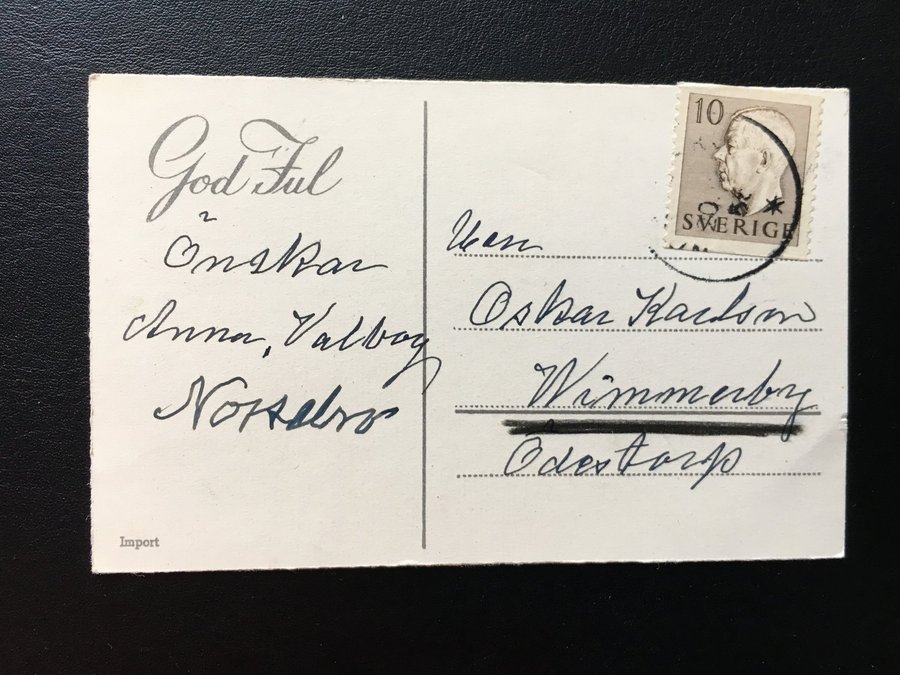 God Jul
Önskar
Anna, Valborg
Import
10
SVERIGE
Herr
Oskar Karlsson
Wimmerby
Ödestorp